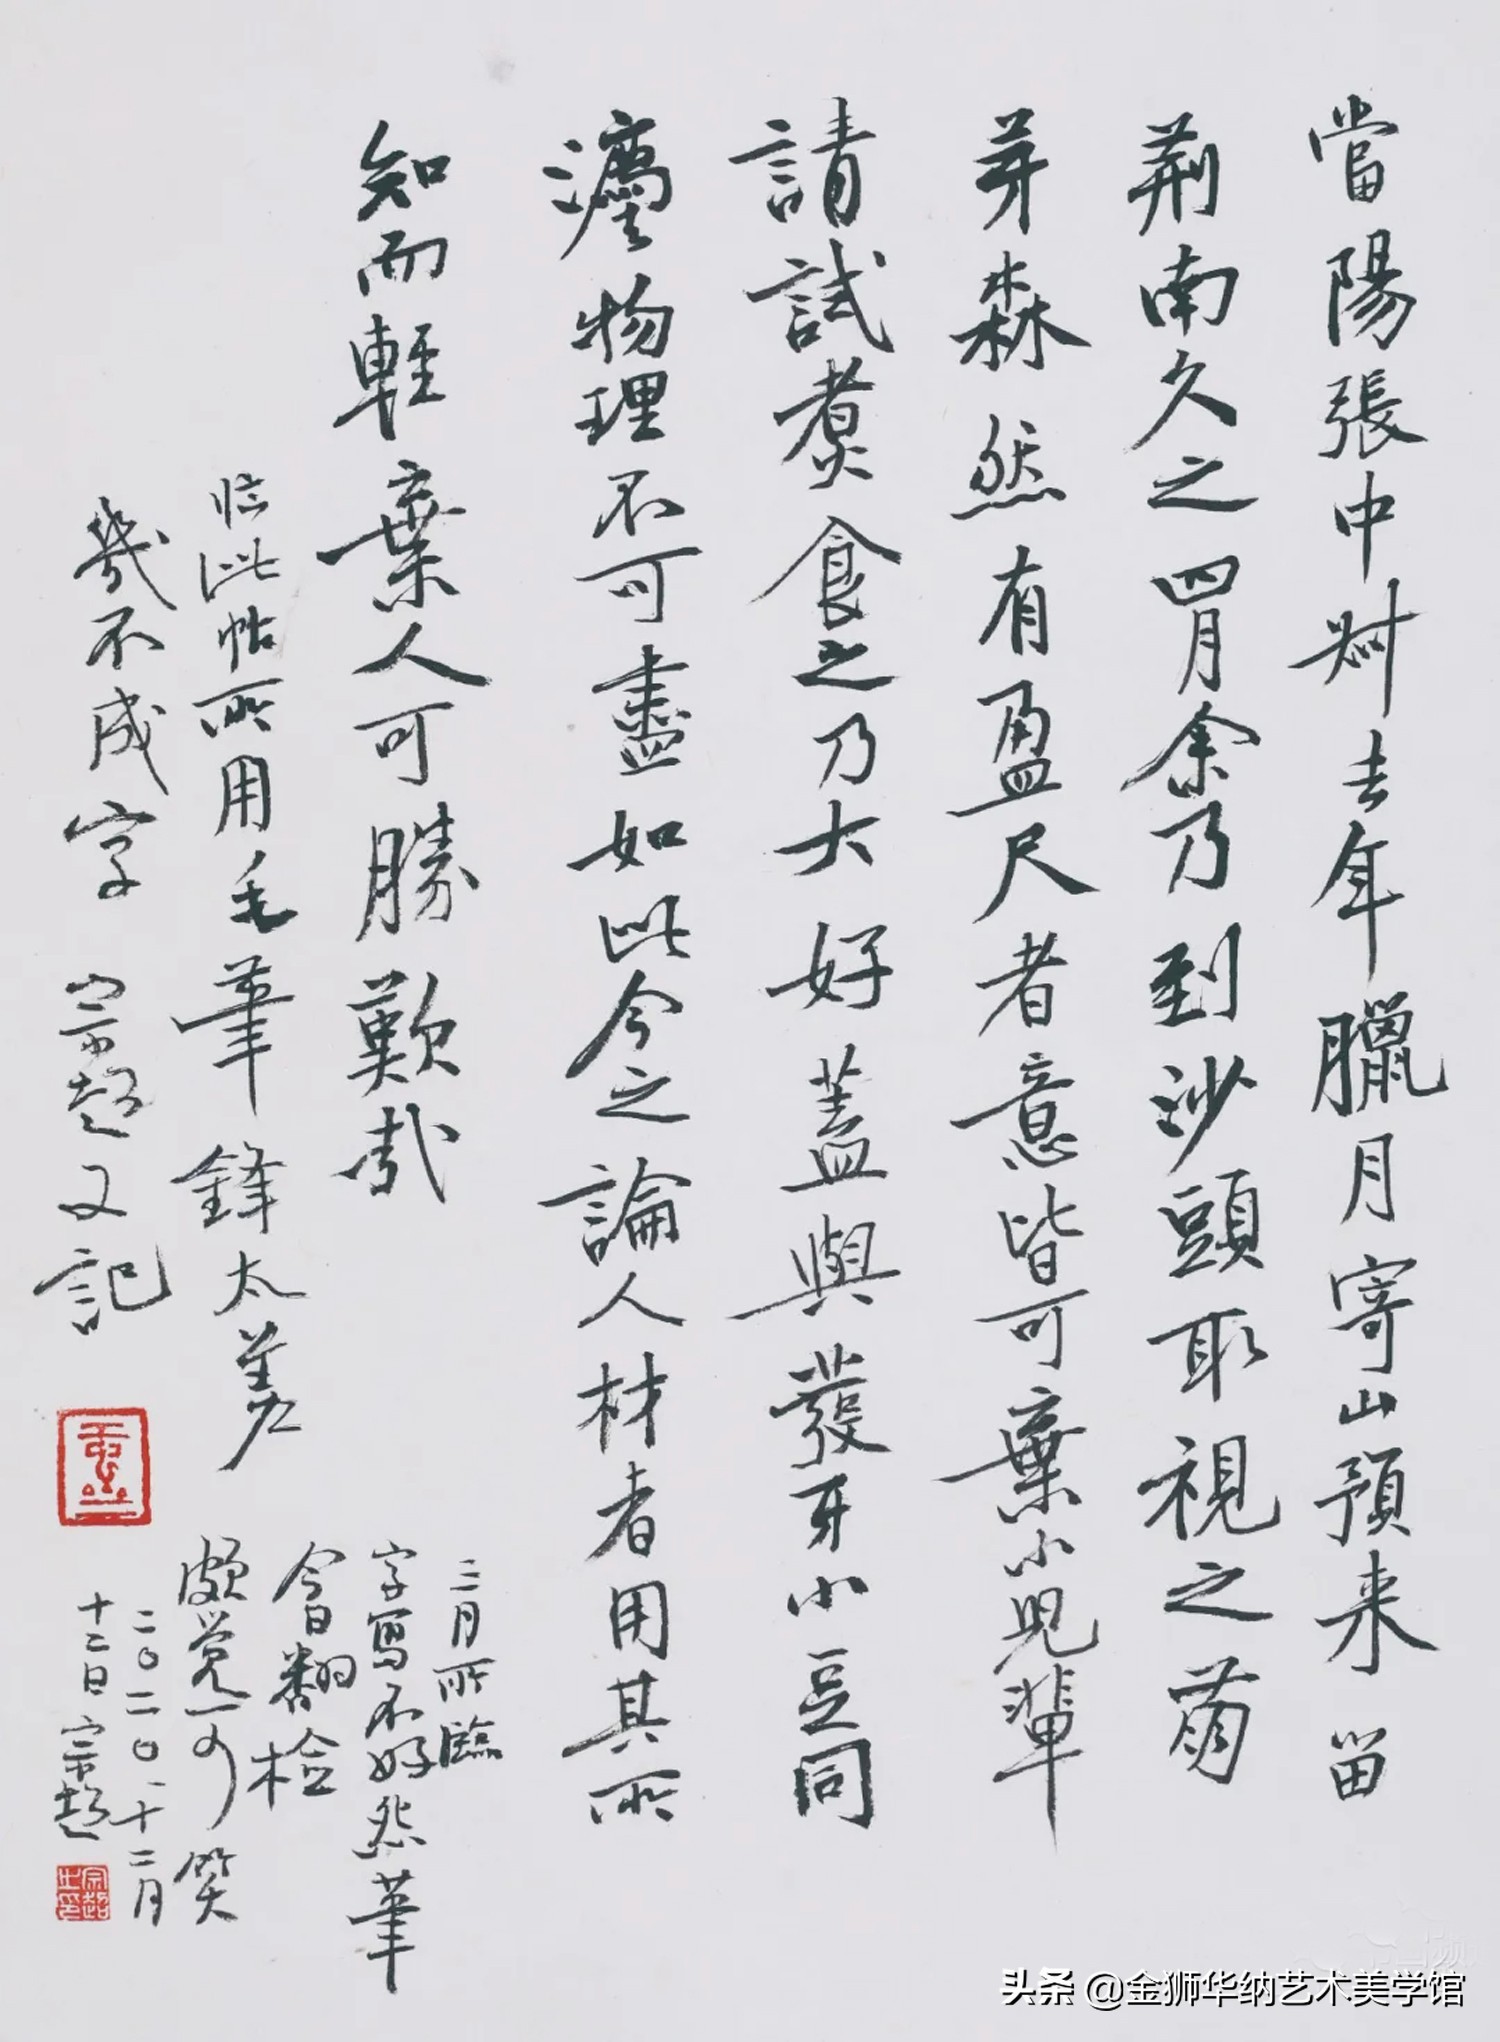 當陽張中叔去年臘月寄山預来留
荊南久之四月余乃到沙頭取視之萌
芽森然有盈尺者意皆可棄小兒輩
請試煮食之乃大好蓋與發牙小豆同
灋物理不可盡如此今之論人材者用其所
知而輕棄人可勝歎哉
临此帖所用毛筆鋒太差
幾不成字 宗超又記
二月所臨
字寫不好怨筆
今日翻检
頗觉可笑
二〇二〇、十二月
十二日 宗超
宗超之印
头条 @金狮华纳艺术美学馆